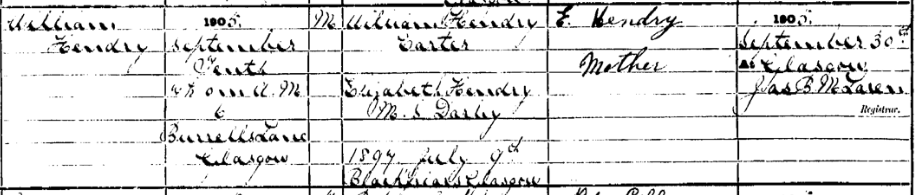 William
Hendry
1905.
September
Tenth
4h 0m A.M.
6
Burrells Lane
Glasgow
M.
William Hendry
Carter
Elizabeth Hendry
M.S. Darby
1897 July 9th
Blackfriars Glasgow
E. Hendry
Mother
1905.
September 30th
at Glasgow
Jas B. McLaren
Registrar.